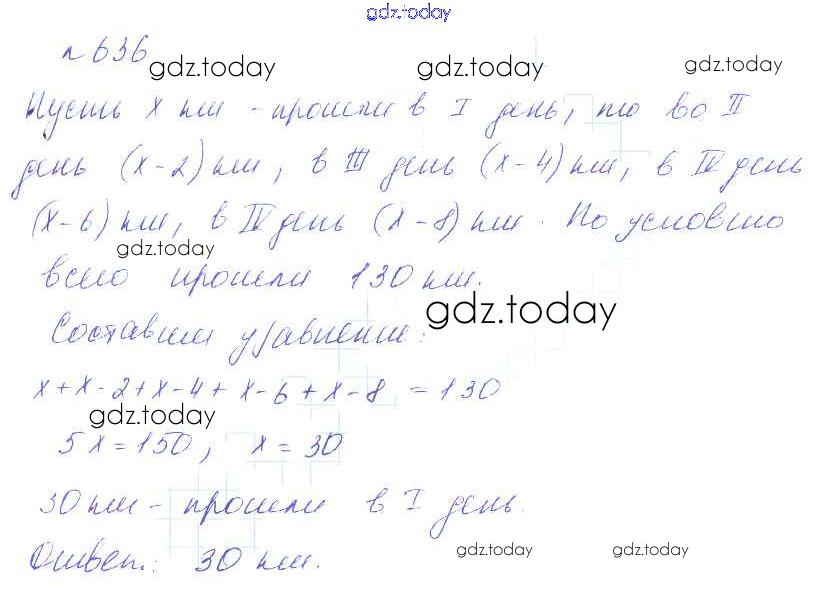 gdz.today
№ 636
gdz.today gdz.today gdz.today
Пусть х км - прошли в I день, то во II
день (х-2) км, в III день (х-4) км, в IV день
(х-6) км, в IV день (х-8) км. По условию
gdz.today
всего прошли 130 км.
gdz.today
Составим уравнение:
х+х-2+х-4+х-6+х-8=130
gdz.today
5х=150, х=30
30 км - прошли в I день.
Ответ: 30 км.
gdz.today gdz.today